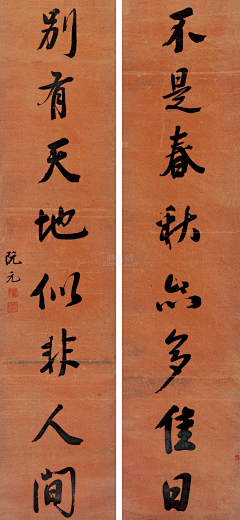 不是春秋亦多佳日
别有天地似非人间
阮元